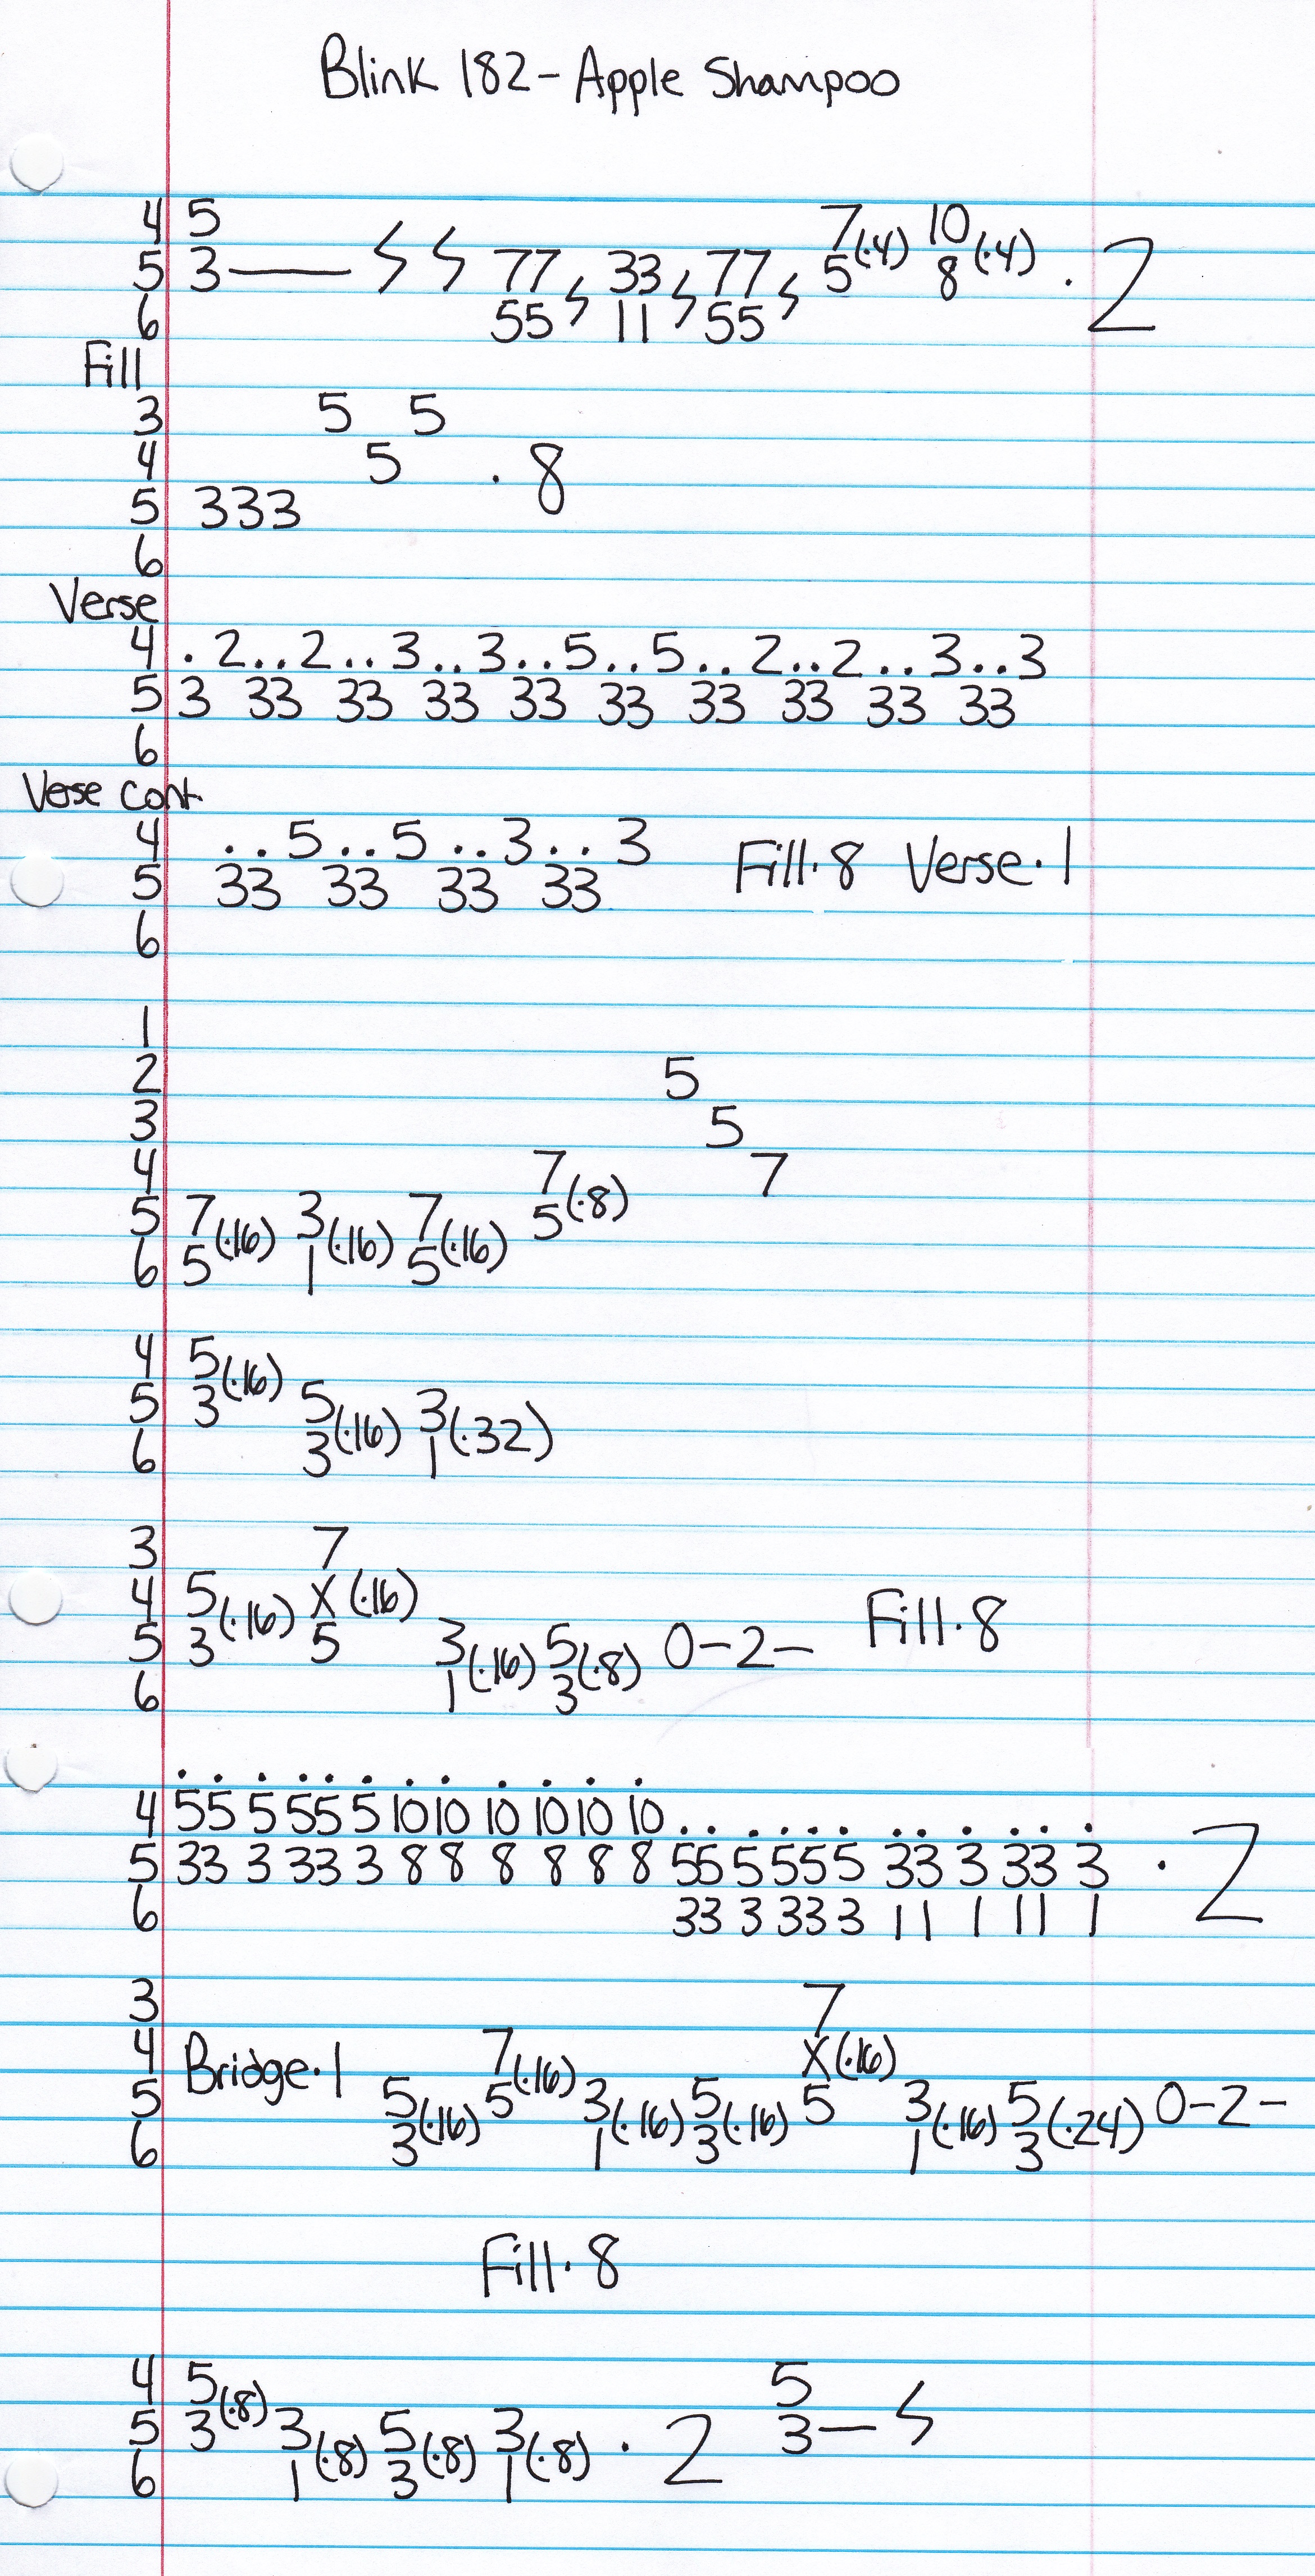 Blink 182 - Apple Shampoo
4 5 7 10
5 3— ϟ ϟ 77 ϟ 33 ϟ 77 ϟ 5 (·4) 8 (·4) · 2
6 55 11 55
Fill
3 5 5
4 5 · 8
5 333
6
Verse
4 . 2 . . 2 . . 3 . . 3 . . 5 . . 5 . . 2 . . 2 . . 3 . . 3
5 3 33 33 33 33 33 33 33 33 33
6
Verse cont.
4 . . 5 . . 5 . . 3 . . 3
5 33 33 33 33 Fill·8 Verse·1
6
1
2 5
3 5
4 7 7
5 7 (·16) 3 (·16) 7 (·16) 5 (·8)
6 5 1 5
4 5 (·16)
5 3 5 (·16) 3 (·32)
6 3 1
3 7
4 5 (·16) X (·16) Fill·8
5 3 5 3 (·16) 5 (·8) 0-2-
6 1 3
. . . . . . . . . . . .
4 55 5 55 5 10 10 10 10 10 10 . . . . . . . . . . . .
5 33 3 33 3 8 8 8 8 8 8 55 5 55 5 33 3 33 3 · 2
6 33 3 33 3 11 1 11 1
3 7
4 Bridge·1 7 (·16) X (·16)
5 5 (·16) 5 3 (·16) 5 (·16) 5 3 (·16) 5 (·24) 0-2-
6 3 1 3 1 3
Fill·8
4 5 (·8) 5
5 3 3 (·8) 5 (·8) 3 (·8) · 2 3— ϟ
6 1 3 1